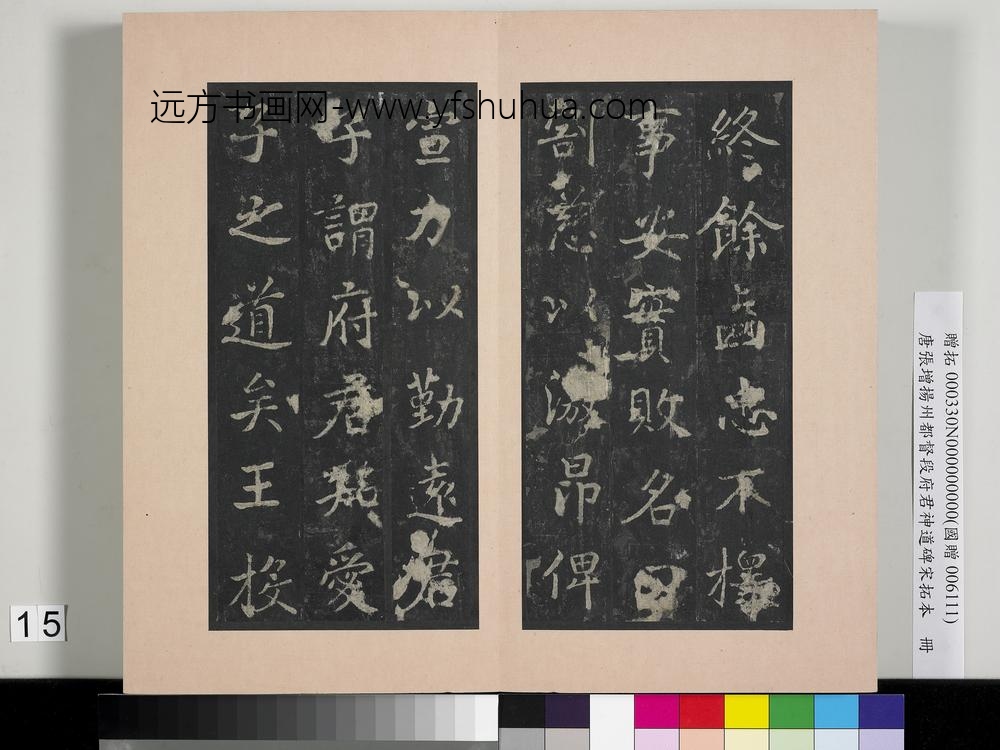 远方书画网-www.yfshuhua.com
終餘齒忠不擇
事安實敗名
割慈以游昂俾
宣力以勤遠君
子謂府君務愛
子之道矣王按
贈拓 000330N000000000(國贈 006111)
唐張增揚州都督段府君神道碑宋拓本 冊
15